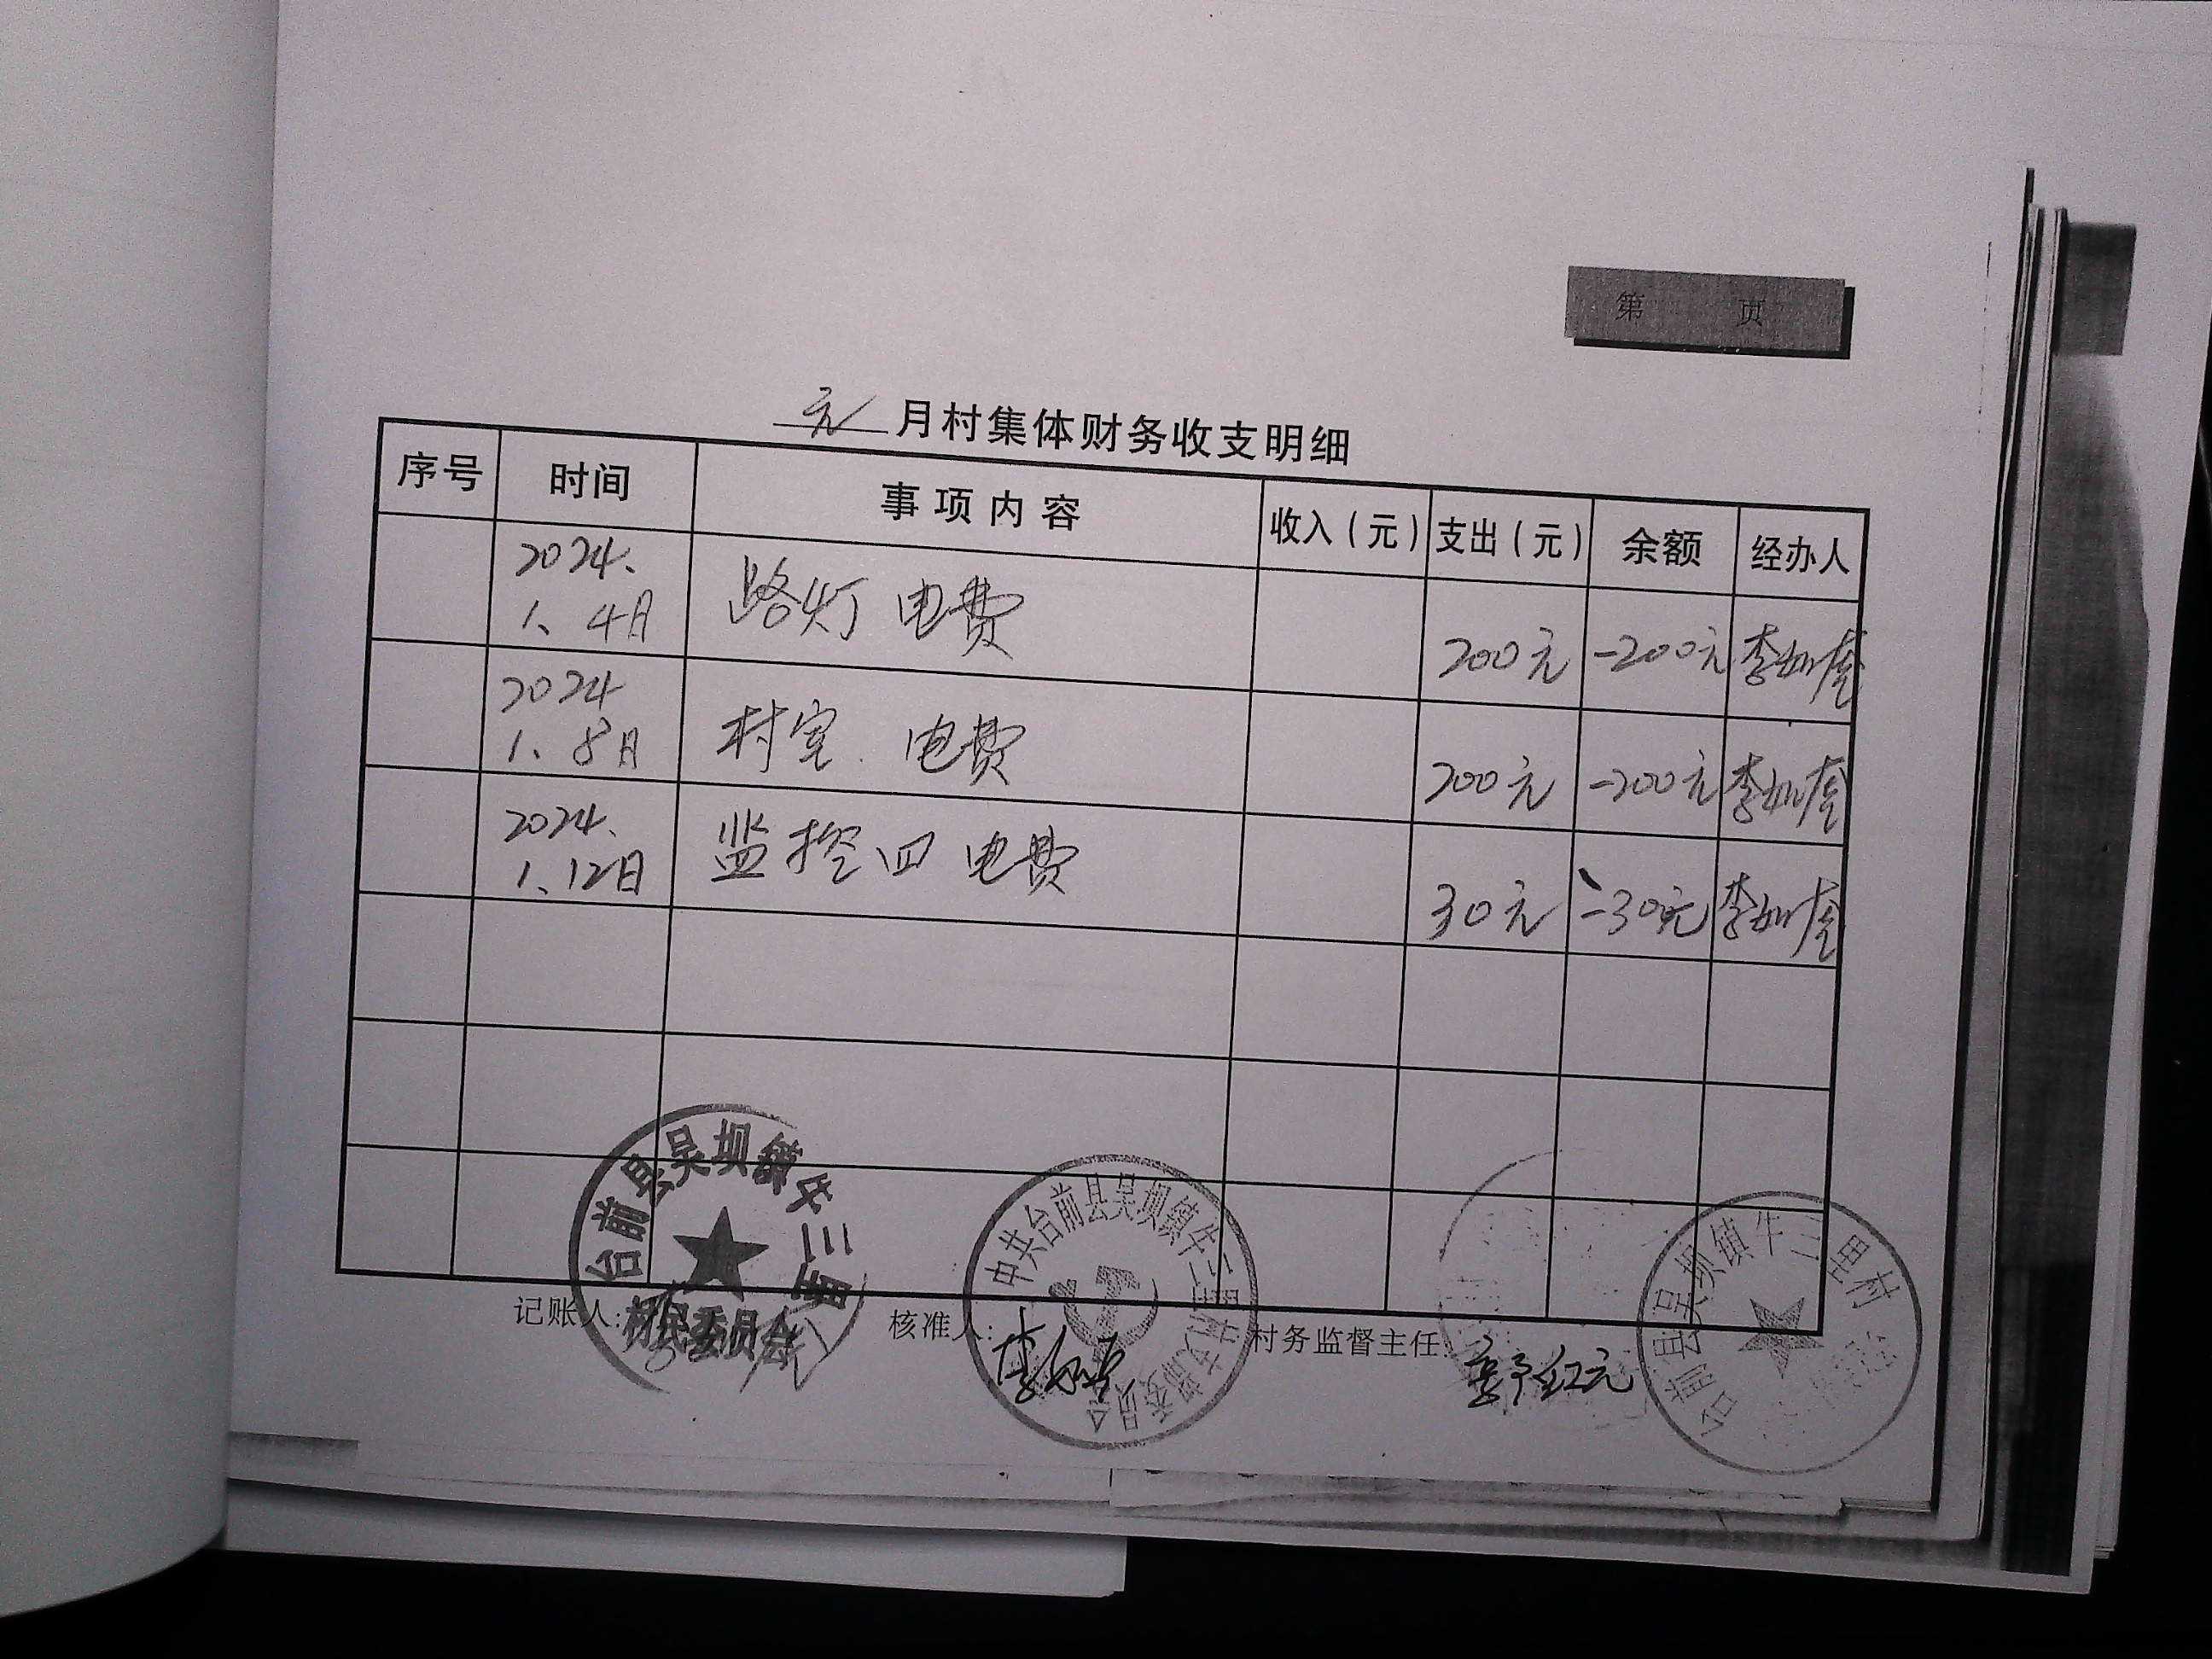 第 页
元 月村集体财务收支明细
序号 时间 事项内容 收入（元） 支出（元） 余额 经办人
2024、
1、4日 路灯 电费 200元 -200元 李如奎
2024
1、8日 村室. 电费 200元 -200元 李如奎
2024、
1、12日 监控 四 电费 30元 -30元 李如奎
台前县吴坝镇牛三里
村民委员会
中共台前县吴坝镇牛三里村支部委员会
台前县吴坝镇牛三里村
记账人: 核准人: 李如奎 村务监督主任: 红元